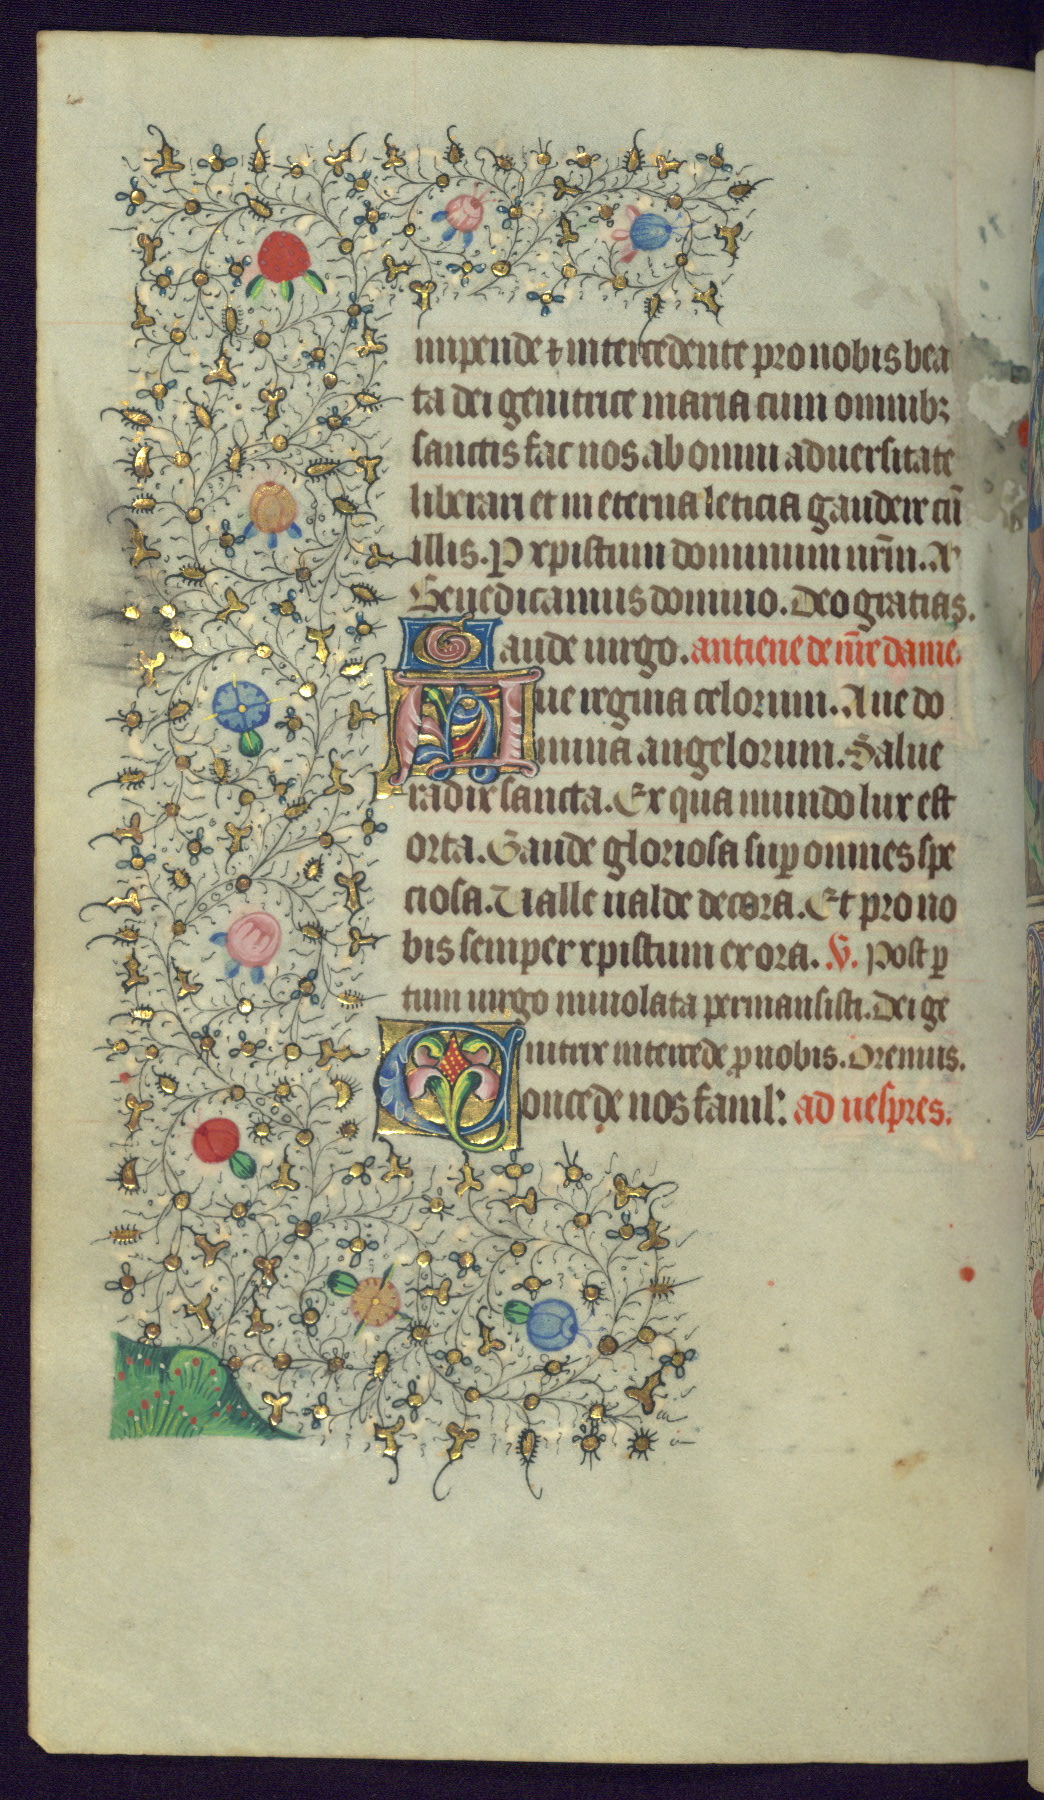 impende ⁊ intercedente pro nobis bea
ta dei genitrice maria cum omnibꝫ
sanctis fac nos ab omni aduersitate
liberari et in eterna leticia gaudeir cū
illis. P xpistum dominum nr̄m. A
Benedicamus domino. Deo gratias.
Gaude uirgo. antiene de nr̄e dame.
Aue regina celorum. Aue do
mina angelorum. Salue
radix sancta. Ex qua mundo lux est
orta. Gaude gloriosa suꝑ omnes spe
ciosa. Ualle ualde decora. Et pro no
bis semper xpistum exora. V. Post ꝑ
tum uirgo inuiolata permansisti. Dei ge
nitrix intercede ꝓ nobis. Oremus.
Concede nos famul: ad uespres.